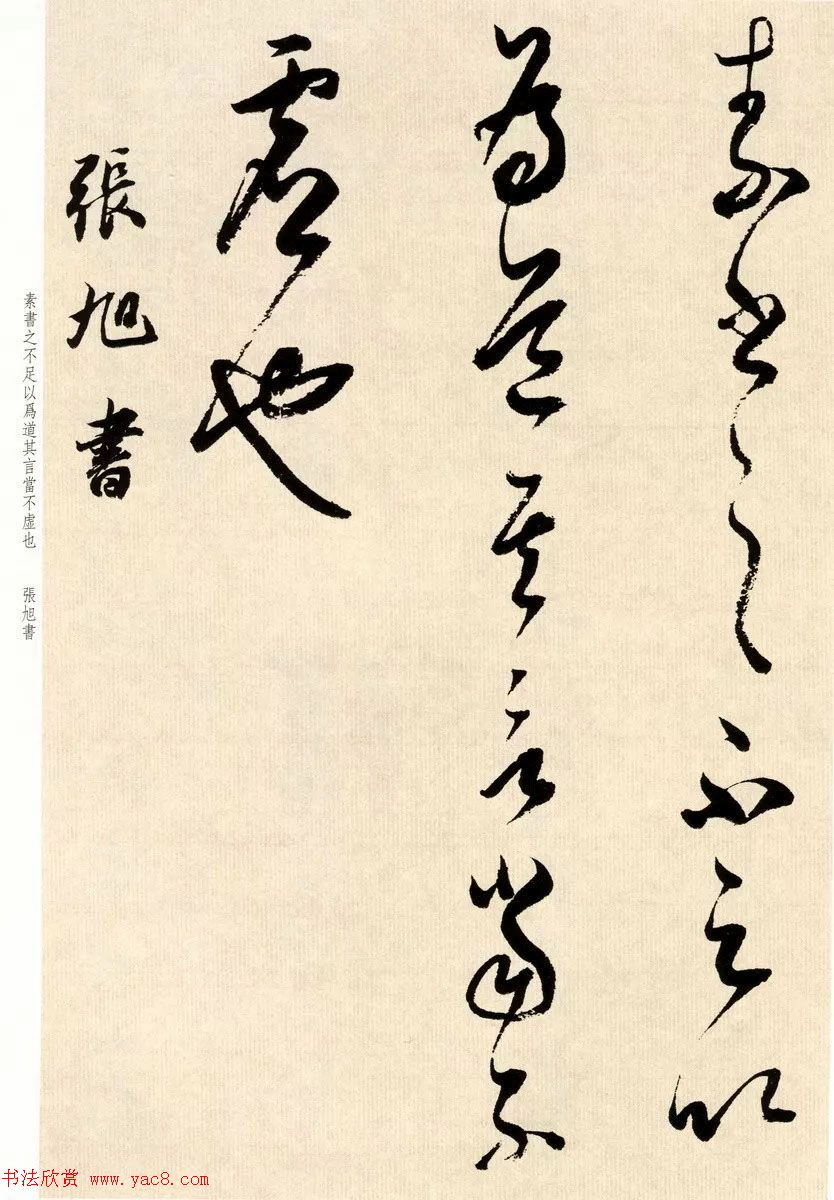 素書之不足以
爲道其言當不
虛也
張旭書
素書之不足以爲道其言當不虛也 張旭書
书法欣赏 www.yac8.com